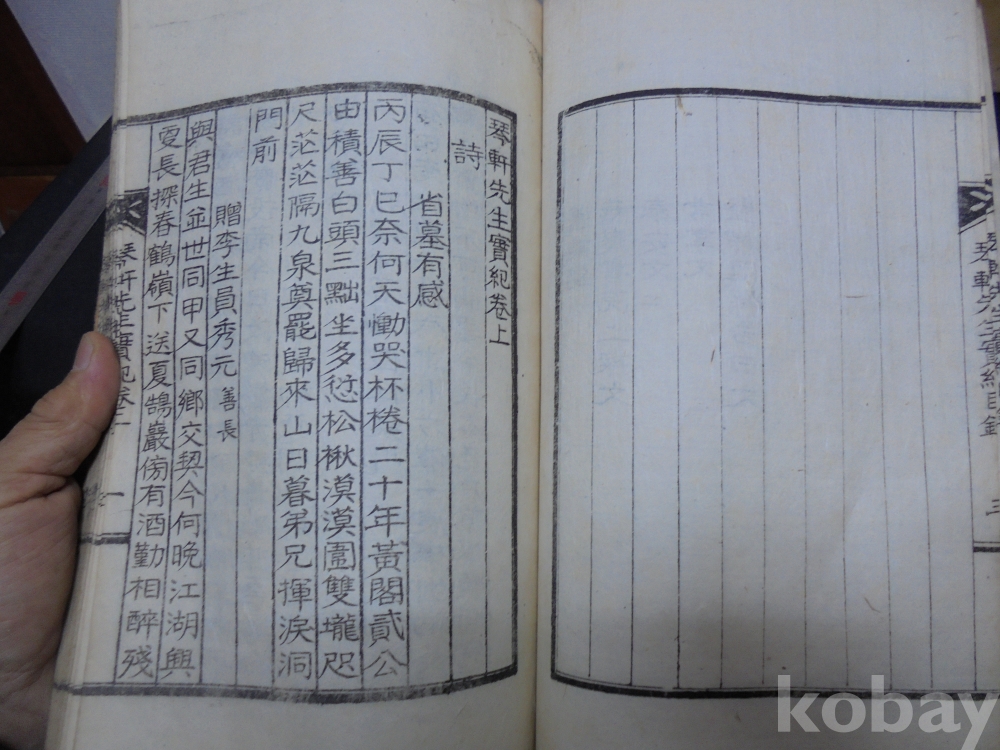 琴軒先生實紀目錄
三
琴軒先生實紀卷上
詩
省墓有感
丙辰丁巳奈何天慟哭杯棬二十年黃閣貳公
由積善白頭三黜坐多愆松楸漠漠圍雙壠咫
尺茫茫隔九泉奠罷歸來山日暮弟兄揮淚洞
門前
贈李生員秀元 善長
與君生並世同甲又同鄉交契今何晩江湖興
更長探春鶴嶺下送夏鵠巖傍有酒勤相酔殘
琴軒先生實紀卷上
一
kobay